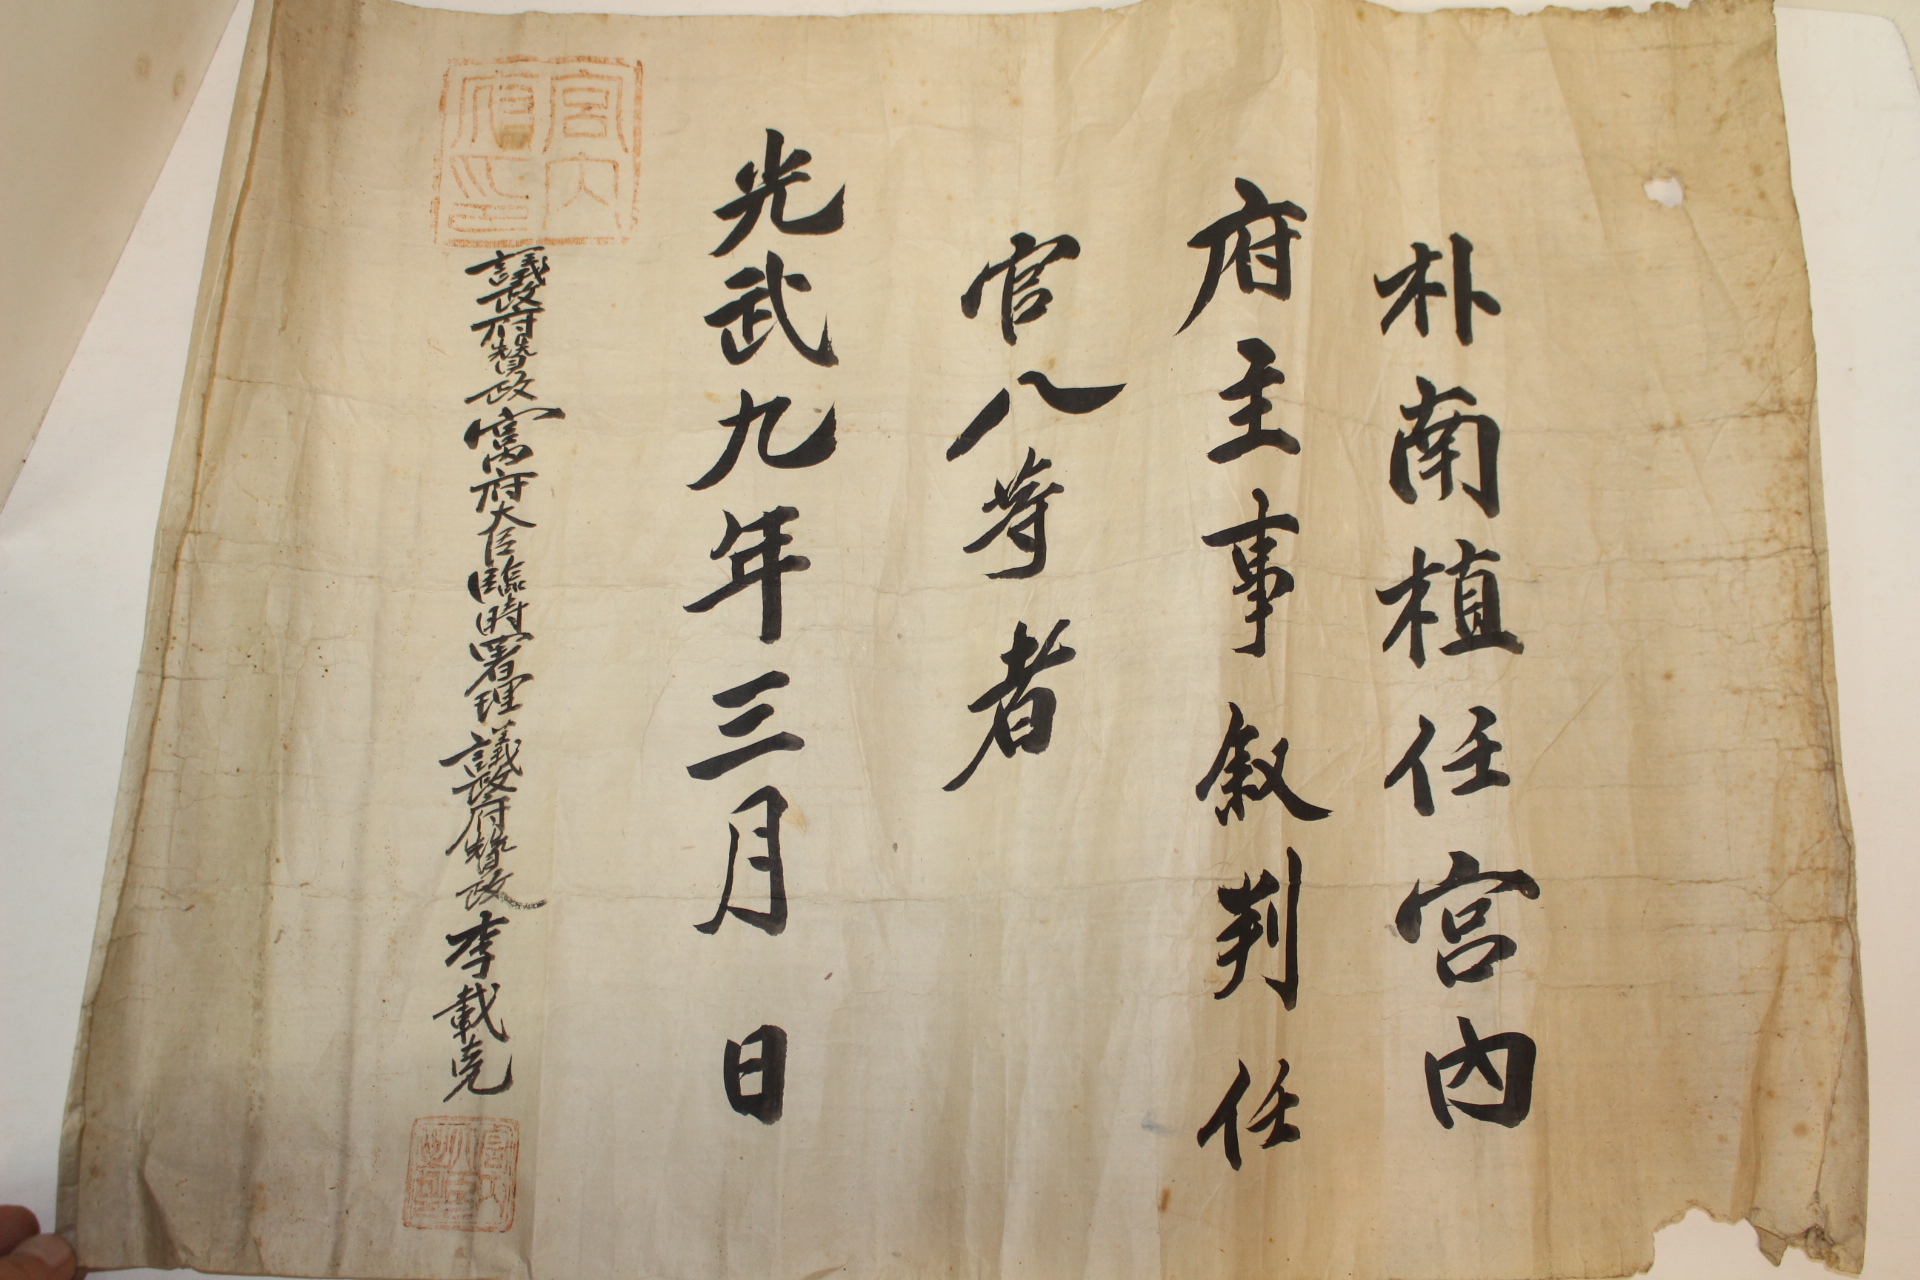 朴南植任宮內
府主事敍判任
官八等者
光武九年三月 日
議政府贊政宮內府大臣臨時署理議政府贊政李載克
宮內府印
宮內大臣